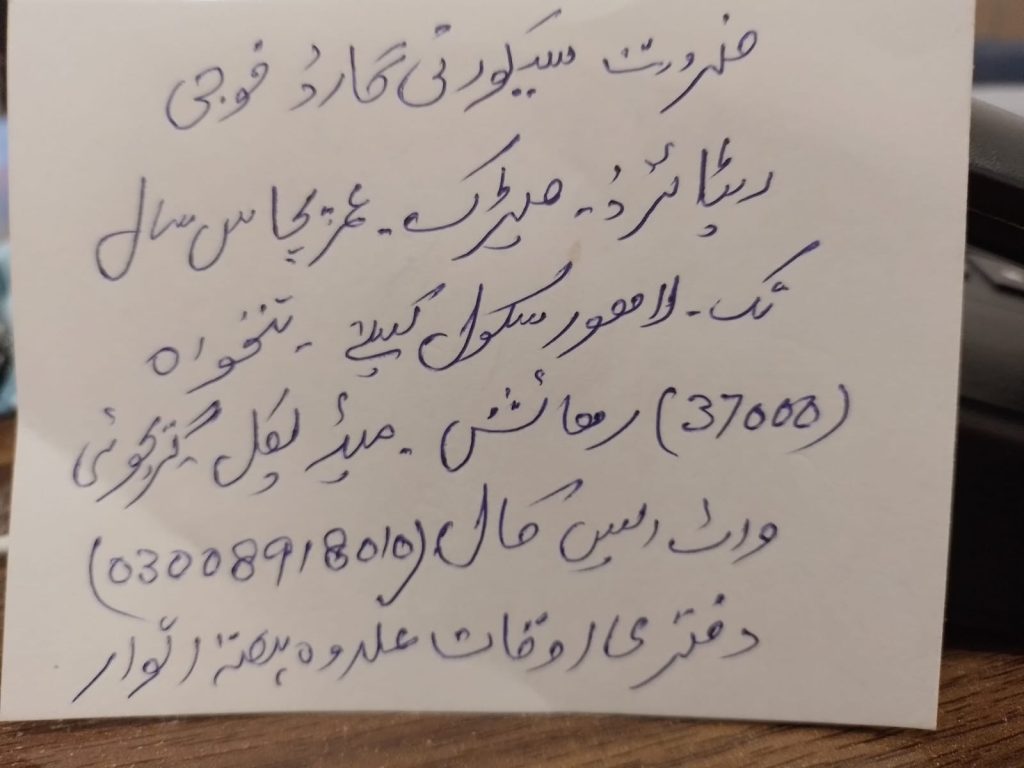 ضرورت سیکورٹی گارڈ فوجی
ریٹائرڈ۔ میٹرک۔ عمر پچاس سال
تک۔ لاھور سکول کیلئے۔ تنخواہ
(37000) رھائش۔ میڈیکل گریجوئٹی
واٹس ایپ کال (03008918010)
دفتری اوقات علاوہ ہفتہ اتوار